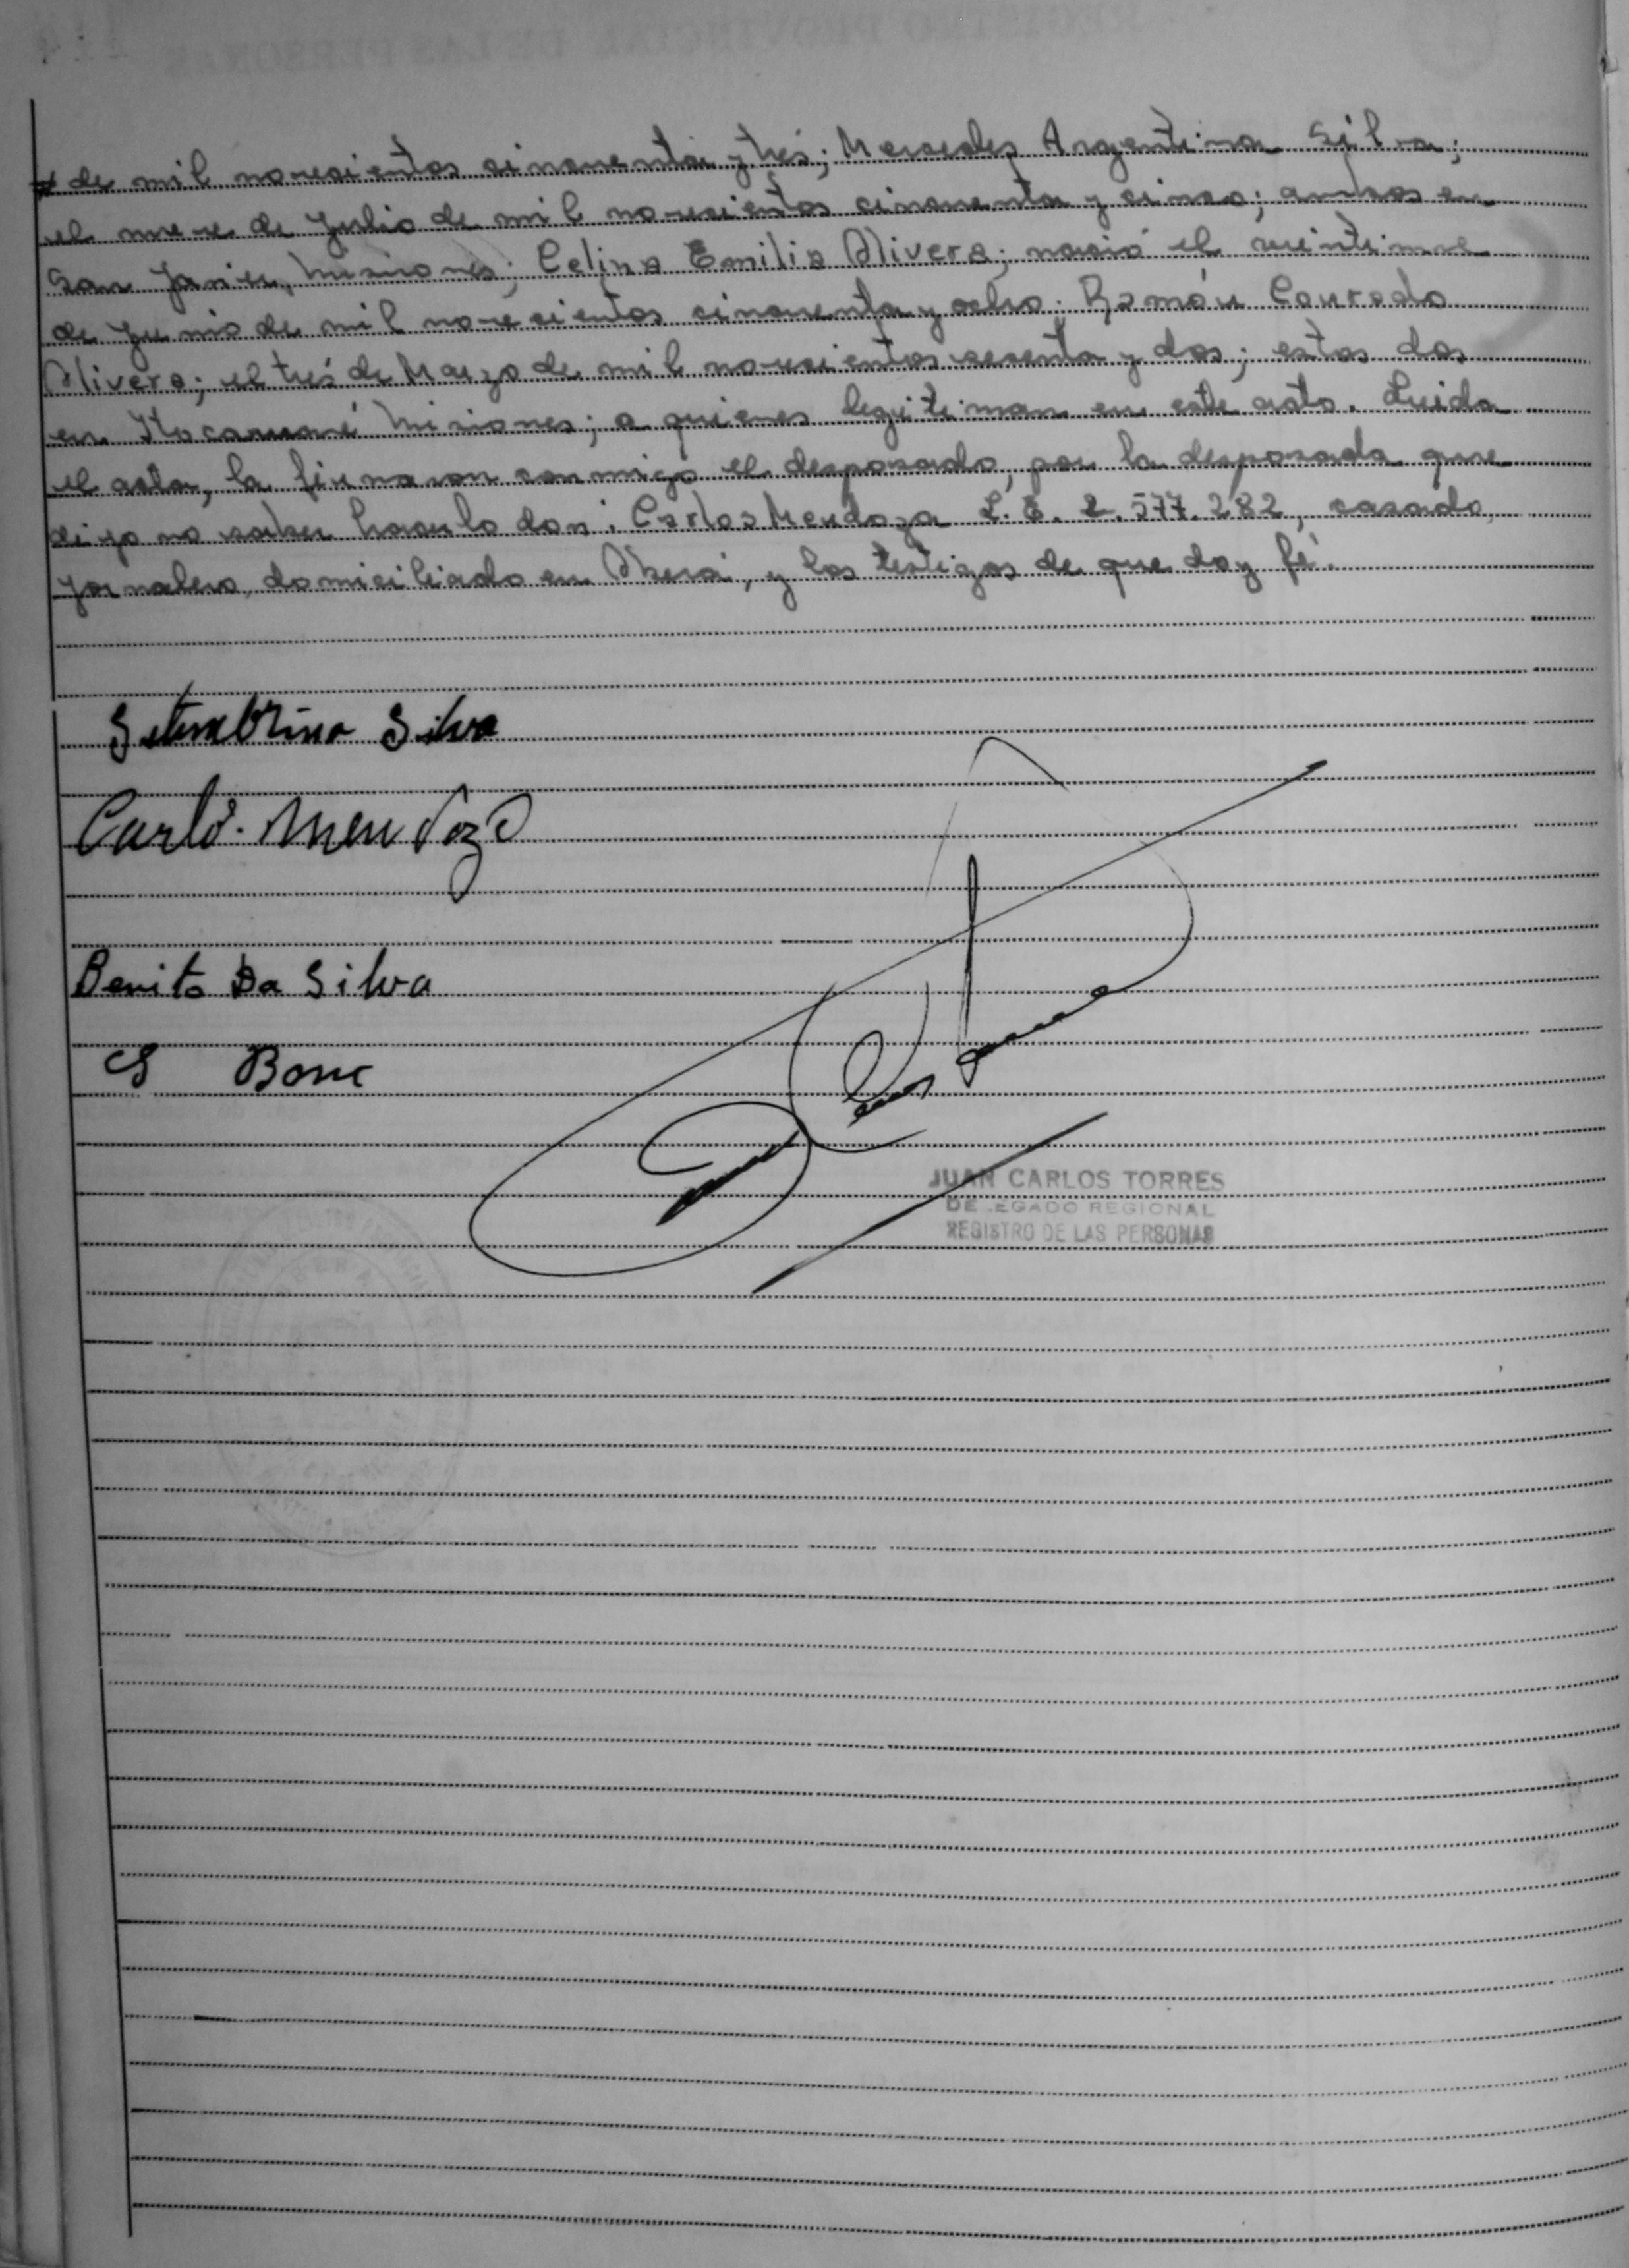 de mil novecientos cincuenta y trés; Mercedes Argentina Silva;
el nueve de Julio de mil novecientos cincuenta y cinco; ambos en
San Javier, Misiones; Celina Emilia Olivera; nació el veintinueve
de Junio de mil novecientos cincuenta y ocho. Ramón Conrado
Olivera; el trés de Marzo de mil novecientos sesenta y dos; estos dos
en Misiones; a quienes legitiman en este acto. Leida
el acta, la firmaron conmigo el desposado, por la desposada que
dijo no saber hacerlo don: Carlos Mendoza L. E. 2.577.282, casado,
jornalero, domiciliado en Oberá, y los testigos de que doy fé.
Setembrino Silva
Carlo. Mendozo
Benito Da Silva
JUAN CARLOS TORRES
DELEGADO REGIONAL
REGISTRO DE LAS PERSONAS